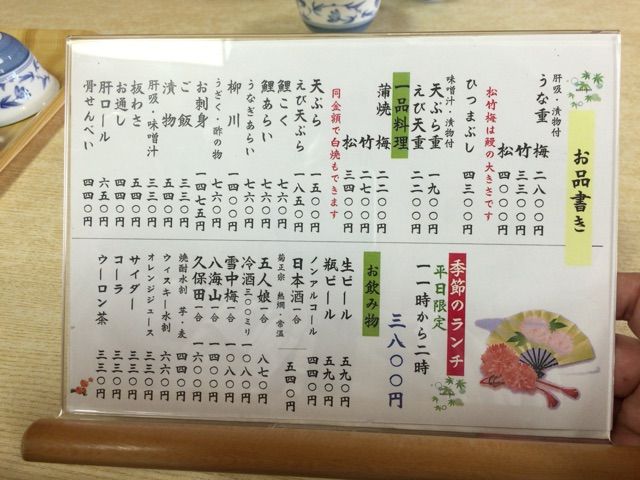 お品書き
肝吸・漬物付
うな重 梅 二八〇〇円
竹 三三〇〇円
松 四一〇〇円
松竹梅は鰻の大きさです
ひつまぶし 四三〇〇円
味噌汁・漬物付
天ぷら重 一九〇〇円
えび天重 二二〇〇円
一品料理
蒲焼 梅 二二〇〇円
竹 二七〇〇円
松 三四〇〇円
同金額で白焼もできます
天ぷら 一五〇〇円
えび天ぷら 一八五〇円
鯉こく 七六〇円
鯉あらい 七六〇円
うなぎあらい
柳川 一四〇〇円
うざく・酢の物 七六〇円
お刺身 一四七五円
ご飯 三三〇円
漬物 五四〇円
肝吸・味噌汁 三三〇円
板わさ 五四〇円
お通し 四四〇円
肝ロール 六五〇円
骨せんべい 四四〇円
季節のランチ
平日限定
一一時から二時
三八〇〇円
お飲み物
生ビール 五九〇円
瓶ビール 五九〇円
ノンアルコール 四四〇円
日本酒 一合 五四〇円
菊正宗 熱燗・常温
五人娘 一合 八七〇円
冷酒 三〇〇ミリ 一〇八〇円
雪中梅 一合 一〇八〇円
八海山 一合 一二〇〇円
久保田 一合 一六〇〇円
焼酎水割 芋・麦 六六〇円
ウィスキー水割 六六〇円
オレンジジュース 三三〇円
サイダー 三三〇円
コーラ 三三〇円
ウーロン茶 三三〇円